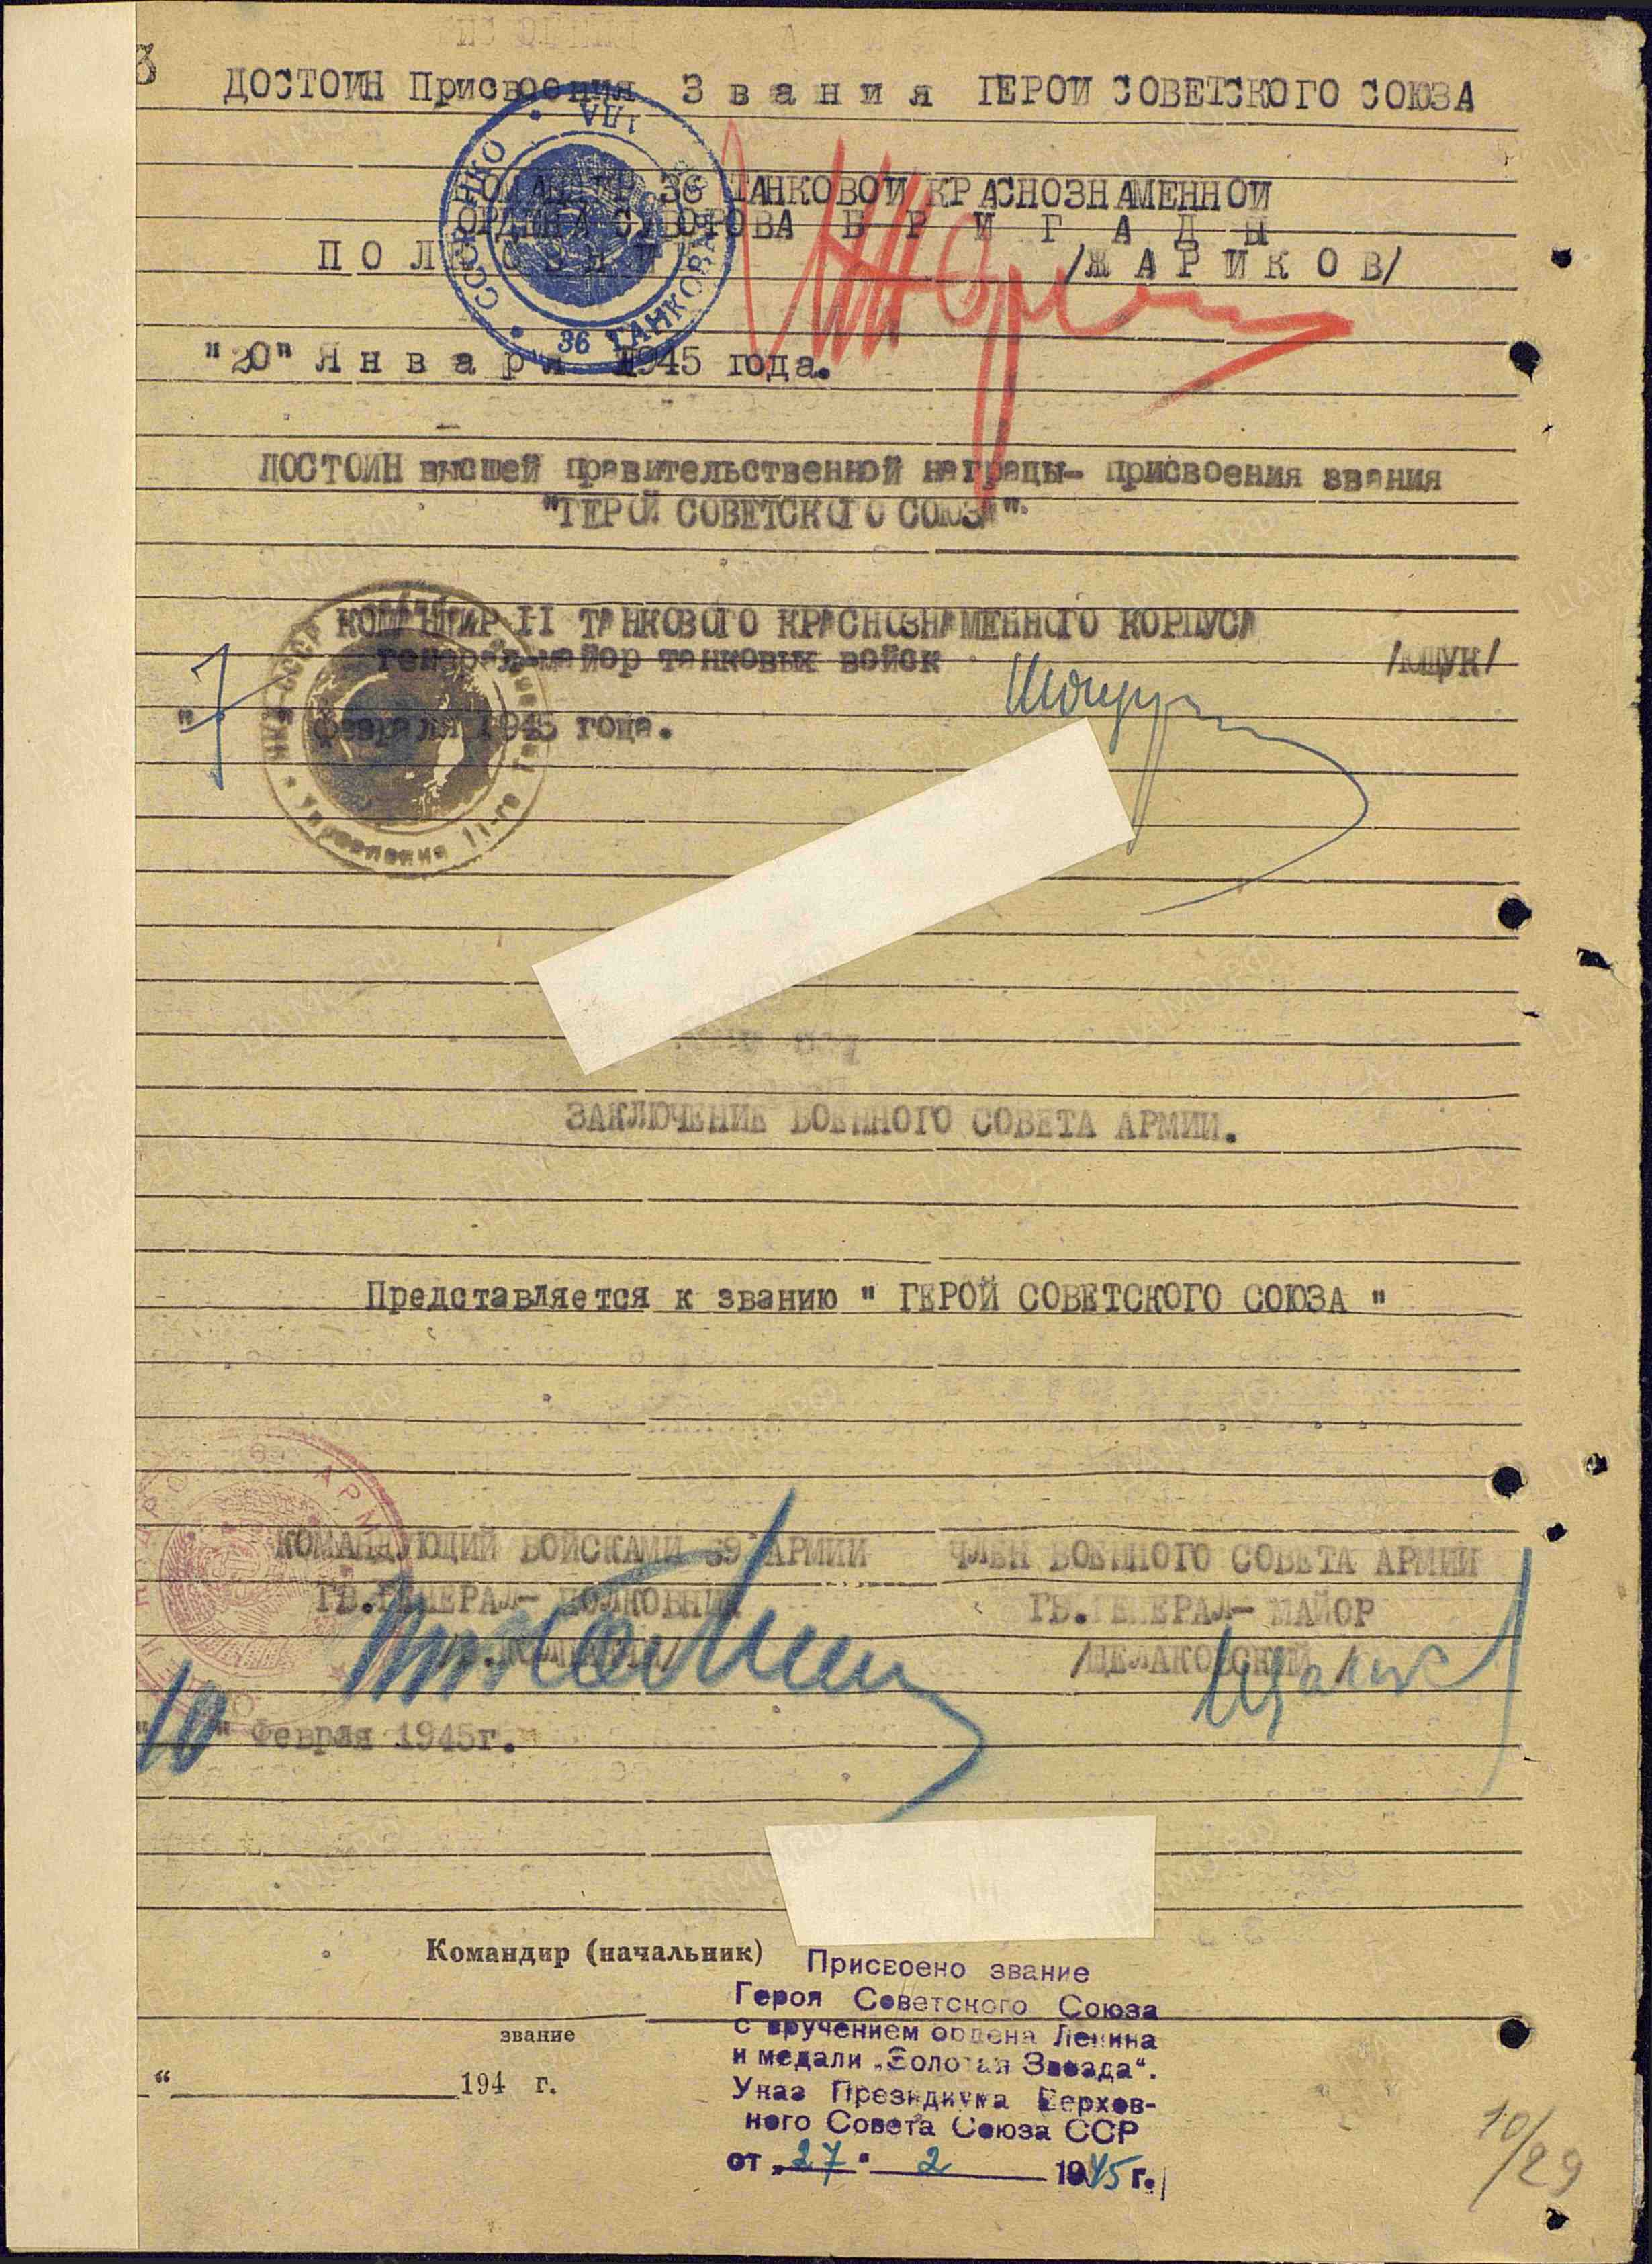 ДОСТОИН Присвоения З в а н и я ГЕРОЙ СОВЕТСКОГО СОЮЗА
КОМАНДИР 36 ТАНКОВОЙ КРАСНОЗНАМЕННОЙ
ОРДЕНА СУВОРОВА Б Р И Г А Д Ы
П О Л К О В Н И К /Ж А Р И К О В/
"20" Я н в а р я 1945 года.
36 ТАНКОВАЯ
ДОСТОИН высшей правительственной награды- присвоения звания
"ГЕРОЙ СОВЕТСКОГО СОЮЗА".
КОМАНДИР II ТАНКОВОГО КРАСНОЗНАМЕННОГО КОРПУСА
генерал-майор танковых войск /ЮЩУК/
"7" февраля 1945 года.
Управление 11-го
ЗАКЛЮЧЕНИЕ ВОЕННОГО СОВЕТА АРМИИ.
Представляется к званию " ГЕРОЙ СОВЕТСКОГО СОЮЗА "
КОМАНДУЮЩИЙ ВОЙСКАМИ 69 АРМИИ ЧЛЕН ВОЕННОГО СОВЕТА АРМИИ
ГВ.ГЕНЕРАЛ- ПОЛКОВНИК ГВ.ГЕНЕРАЛ- МАЙОР
/ЩЕЛАКОВСКИЙ
"10" Феврля 1945г.
Командир (начальник)
звание
“ 194 г.
Присвоено звание
Героя Советского Союза
с вручением ордена Ленина
и медали „Золотая Звезда“.
Указ Президиума Верхов-
ного Совета Союза ССР
от „27" 2 1945 г.
10/29